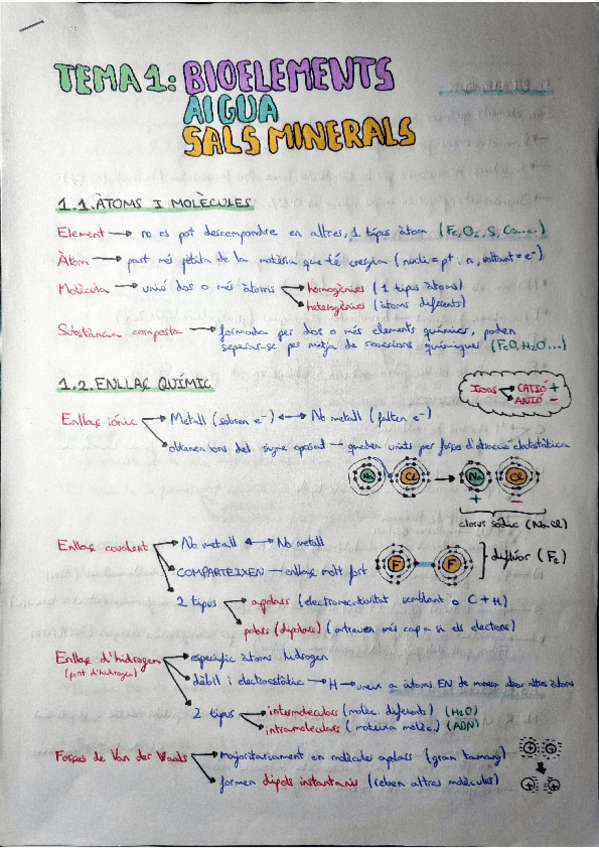 TEMA 1: BIOELEMENTS
AIGUA
SALS MINERALS
1.1. ÀTOMS I MOLÈCULES
Element → no es pot descompondre en altres, 1 tipus àtom (Fe, O₂, S, Ca...)
Àtom → part més petita de la matèria que té energia (nucli = p+ i n, voltant = e⁻)
Molècula → unió dos o més àtoms → homogènies (1 tipus àtoms)
→ heterogènies (àtoms diferents)
Substància composta → formada per dos o més elements químics, poden
separar-se per mitjà de reaccions químiques (FeO, H₂O...)
1.2. ENLLAÇ QUÍMIC
Ions → CATIÓ +
→ ANIÓ −
Enllaç iònic → Metall (sobren e⁻) ↔ No metall (falten e⁻)
→ obtenen ions del signe oposat → queden units per forces d'atracció elektostàtica
Na Cl → Na Cl
+ −
clorur sòdic (NaCl)
Enllaç covalent → No metall ↔ No metall
→ COMPARTEIXEN → enllaç molt fort
F F difluor (F₂)
→ 2 tipus → apolars (electronegativitat semblant o C + H)
→ polars (dipolars) (atreuen més cap a si els electrons)
Enllaç d'hidrogen → específic àtoms hidrogen
(pont d'hidrogen)
→ dèbil i electrostàtic → H → uneix a àtoms EN de manera dos altres àtoms
→ 2 tipus → intermoleculars (molèc. diferents) (H₂O)
→ intramoleculars (mateixa molèc.) (ADN)
Forces de Van der Waals → majoritàriament en molècules apolars (gran tamany)
→ formen dipols instantanis (reben altres molècules)